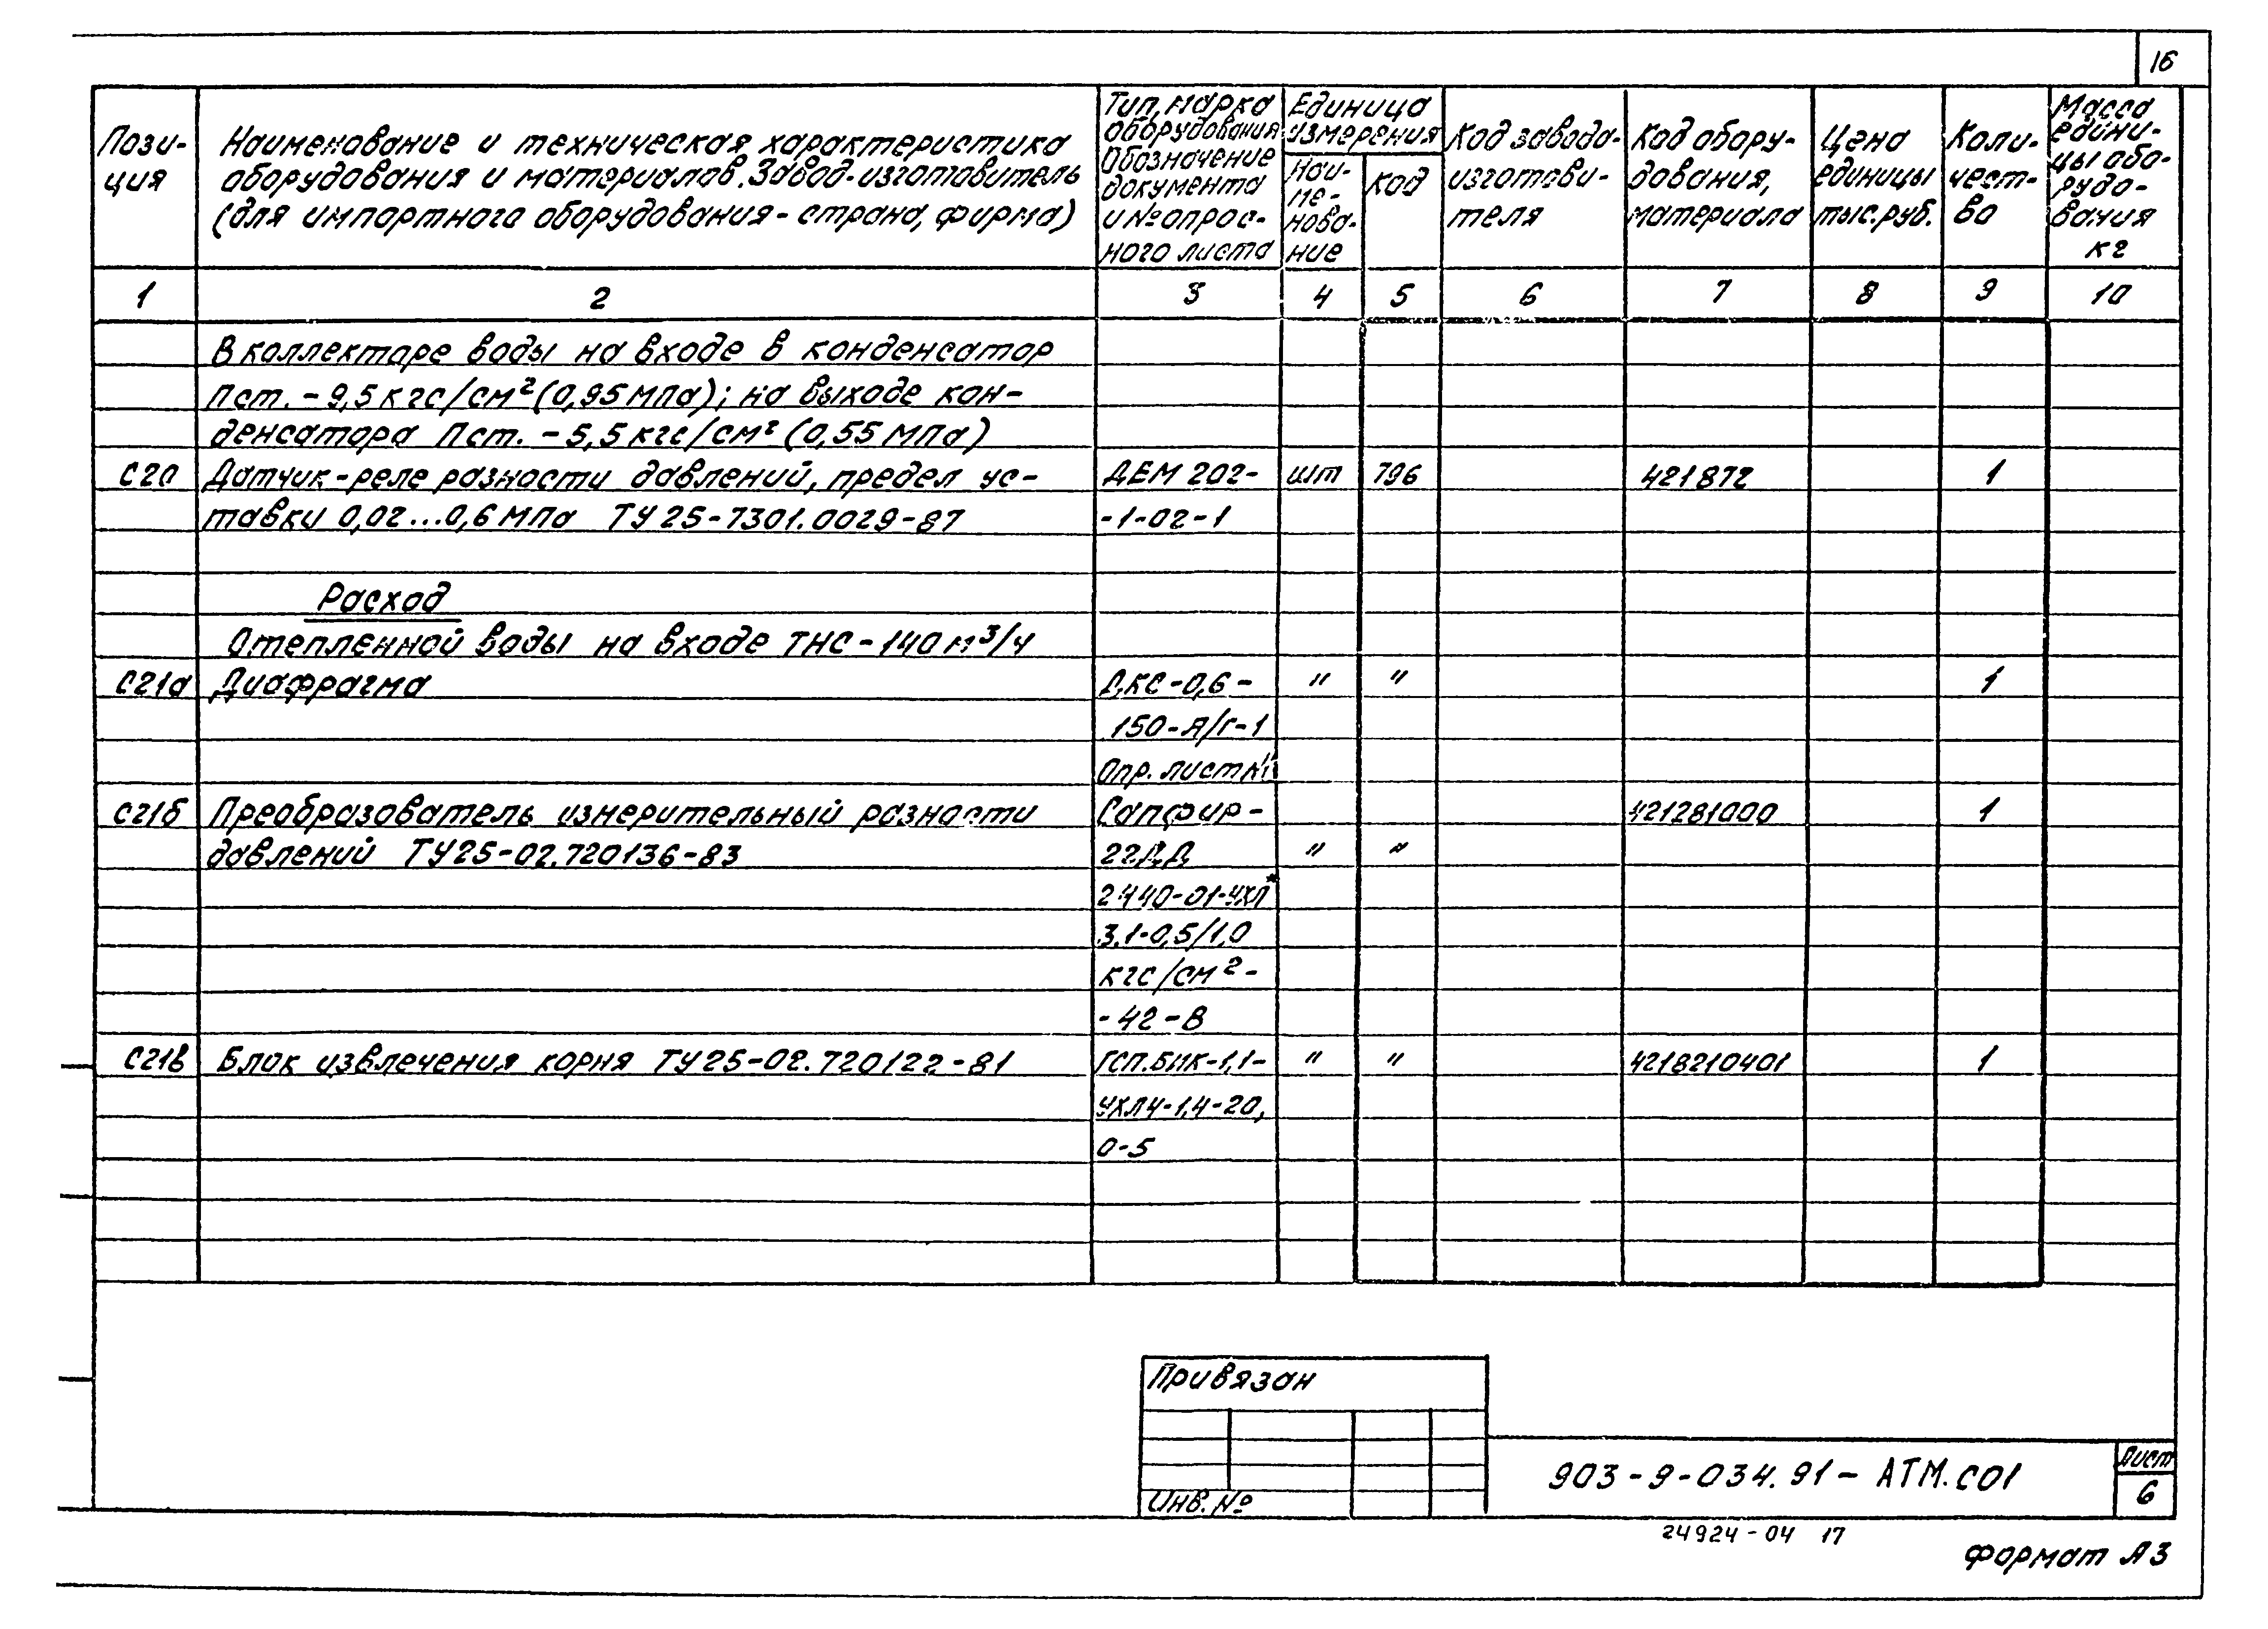 16
Пози-
ция
Наименование и техническая характеристика
оборудования и материалов. Завод-изготовитель
(для импортного оборудования - страна, фирма)
Тип, марка
оборудования
Обозначение
документа
и № опрос-
ного листа
Единица
измерения
Наи-
ме-
нова-
ние
Код
Код завода-
изготови-
теля
Код обору-
дования,
материала
Цена
единицы
тыс.руб.
Коли-
чест-
во
Масса
едини-
цы обо-
рудо-
вания
кг
1 2 3 4 5 6 7 8 9 10
В коллекторе воды на входе в конденсатор
Пст. - 9,5 кгс/см² (0,95 МПа); на выходе кон-
денсатора Пст. - 5,5 кгс/см² (0,55 МПа)
С20 Датчик-реле разности давлений, предел ус- ДЕМ 202- шт 796 421872 1
тавки 0,02...0,6 МПа ТУ 25-7301.0029-87 -1-02-1
Расход
Отепленной воды на входе ТНС - 140 м³/ч
С21а Диафрагма ДКС-0,6- " " 1
150-А/Г-1
Опр. лист №1
С21б Преобразователь измерительный разности Сапфир- 421281000 1
давлений ТУ25-02.720136-83 22ДД " "
2440-01-УХЛ*
3.1-0,5/1,0
кгс/см²-
-42-В
С21в Блок извлечения корня ТУ25-02.720122-81 ГСП.БИК-1,1- " " 4218210401 1
УХЛ4-1,4-20,
0-5
Привязан
Инв. №
903-9-034.91- АТМ.С01
Лист
6
24924-04 17
Формат А3